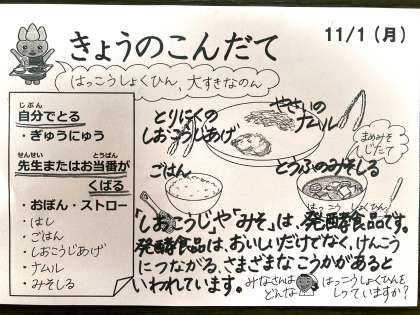 きょうのこんだて
11/1(月)
はっこうしょくひん、大すきなのん
じぶん
自分でとる
・ぎゅうにゅう
せんせい とうばん
先生またはお当番が
くばる
・おぼん・ストロー
・はし
・ごはん
・しおこうじあげ
・ナムル
・みそしる
とりにくの
しおこうじあげ
やさいの
ナムル
まめみそ
じたて
ごはん
とうふのみそしる
はっこうしょくひん
「しおこうじ」や「みそ」は、発酵食品です。
発酵食品は、おいしいだけでなく、けんこう
につながる、さまざまなこうかがあると
いわれています。
みなさんは はっこうしょくひんを
どんな しっていますか?